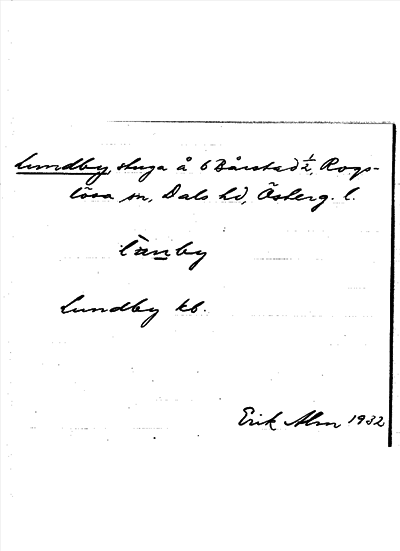 Lundby, stuga å 6 Bårstad ½, Rogs-
lösa sn, Dals hd, Österg. l.
lànby
Lundby kb.
Erik Alm 1932